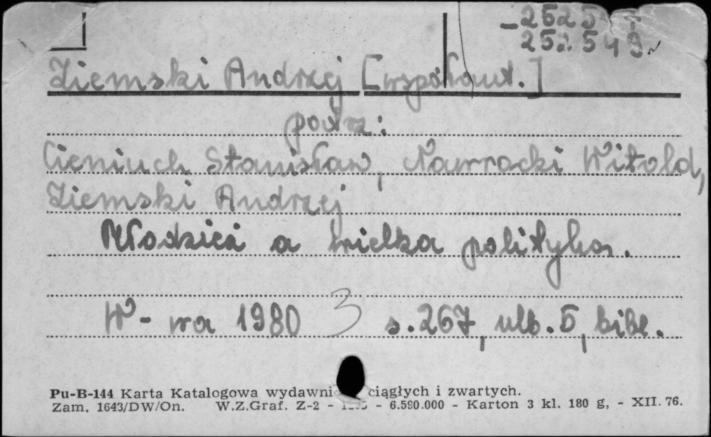 25254
252549
Ziemski Andrzej [współaut.]
patrz:
Cieniuch Stanisław, Nawrocki Witold,
Ziemski Andrzej
Młodzież a wielka polityka.
W-wa 1980 3 s. 267, ulb. 5, bibl.
Pu-B-144 Karta Katalogowa wydawni ciągłych i zwartych.
Zam. 1643/DW/On. W.Z.Graf. Z-2 - - 6.590.000 - Karton 3 kl. 180 g, - XII. 76.